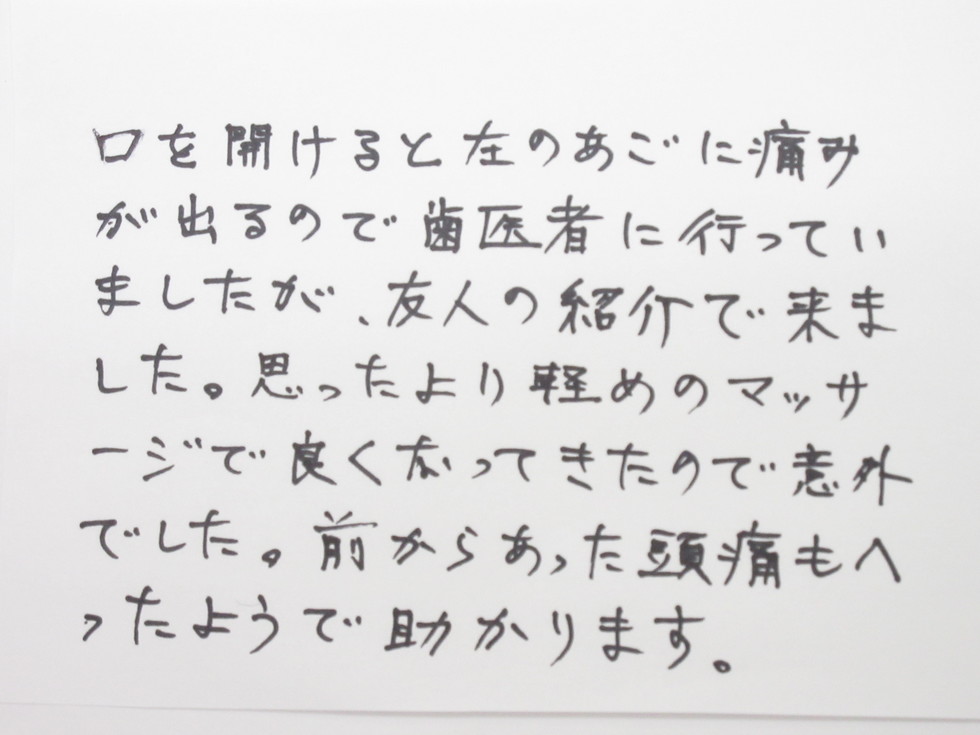 口を開けると左のあごに痛み
が出るので歯医者に行ってい
ましたが、友人の紹介で来ま
した。思ったより軽めのマッサ
ージで良くなってきたので意外
でした。前からあった頭痛もへ
ったようで助かります。